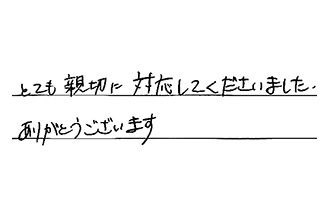 とても親切に対応してくださいました.
ありがとうございます